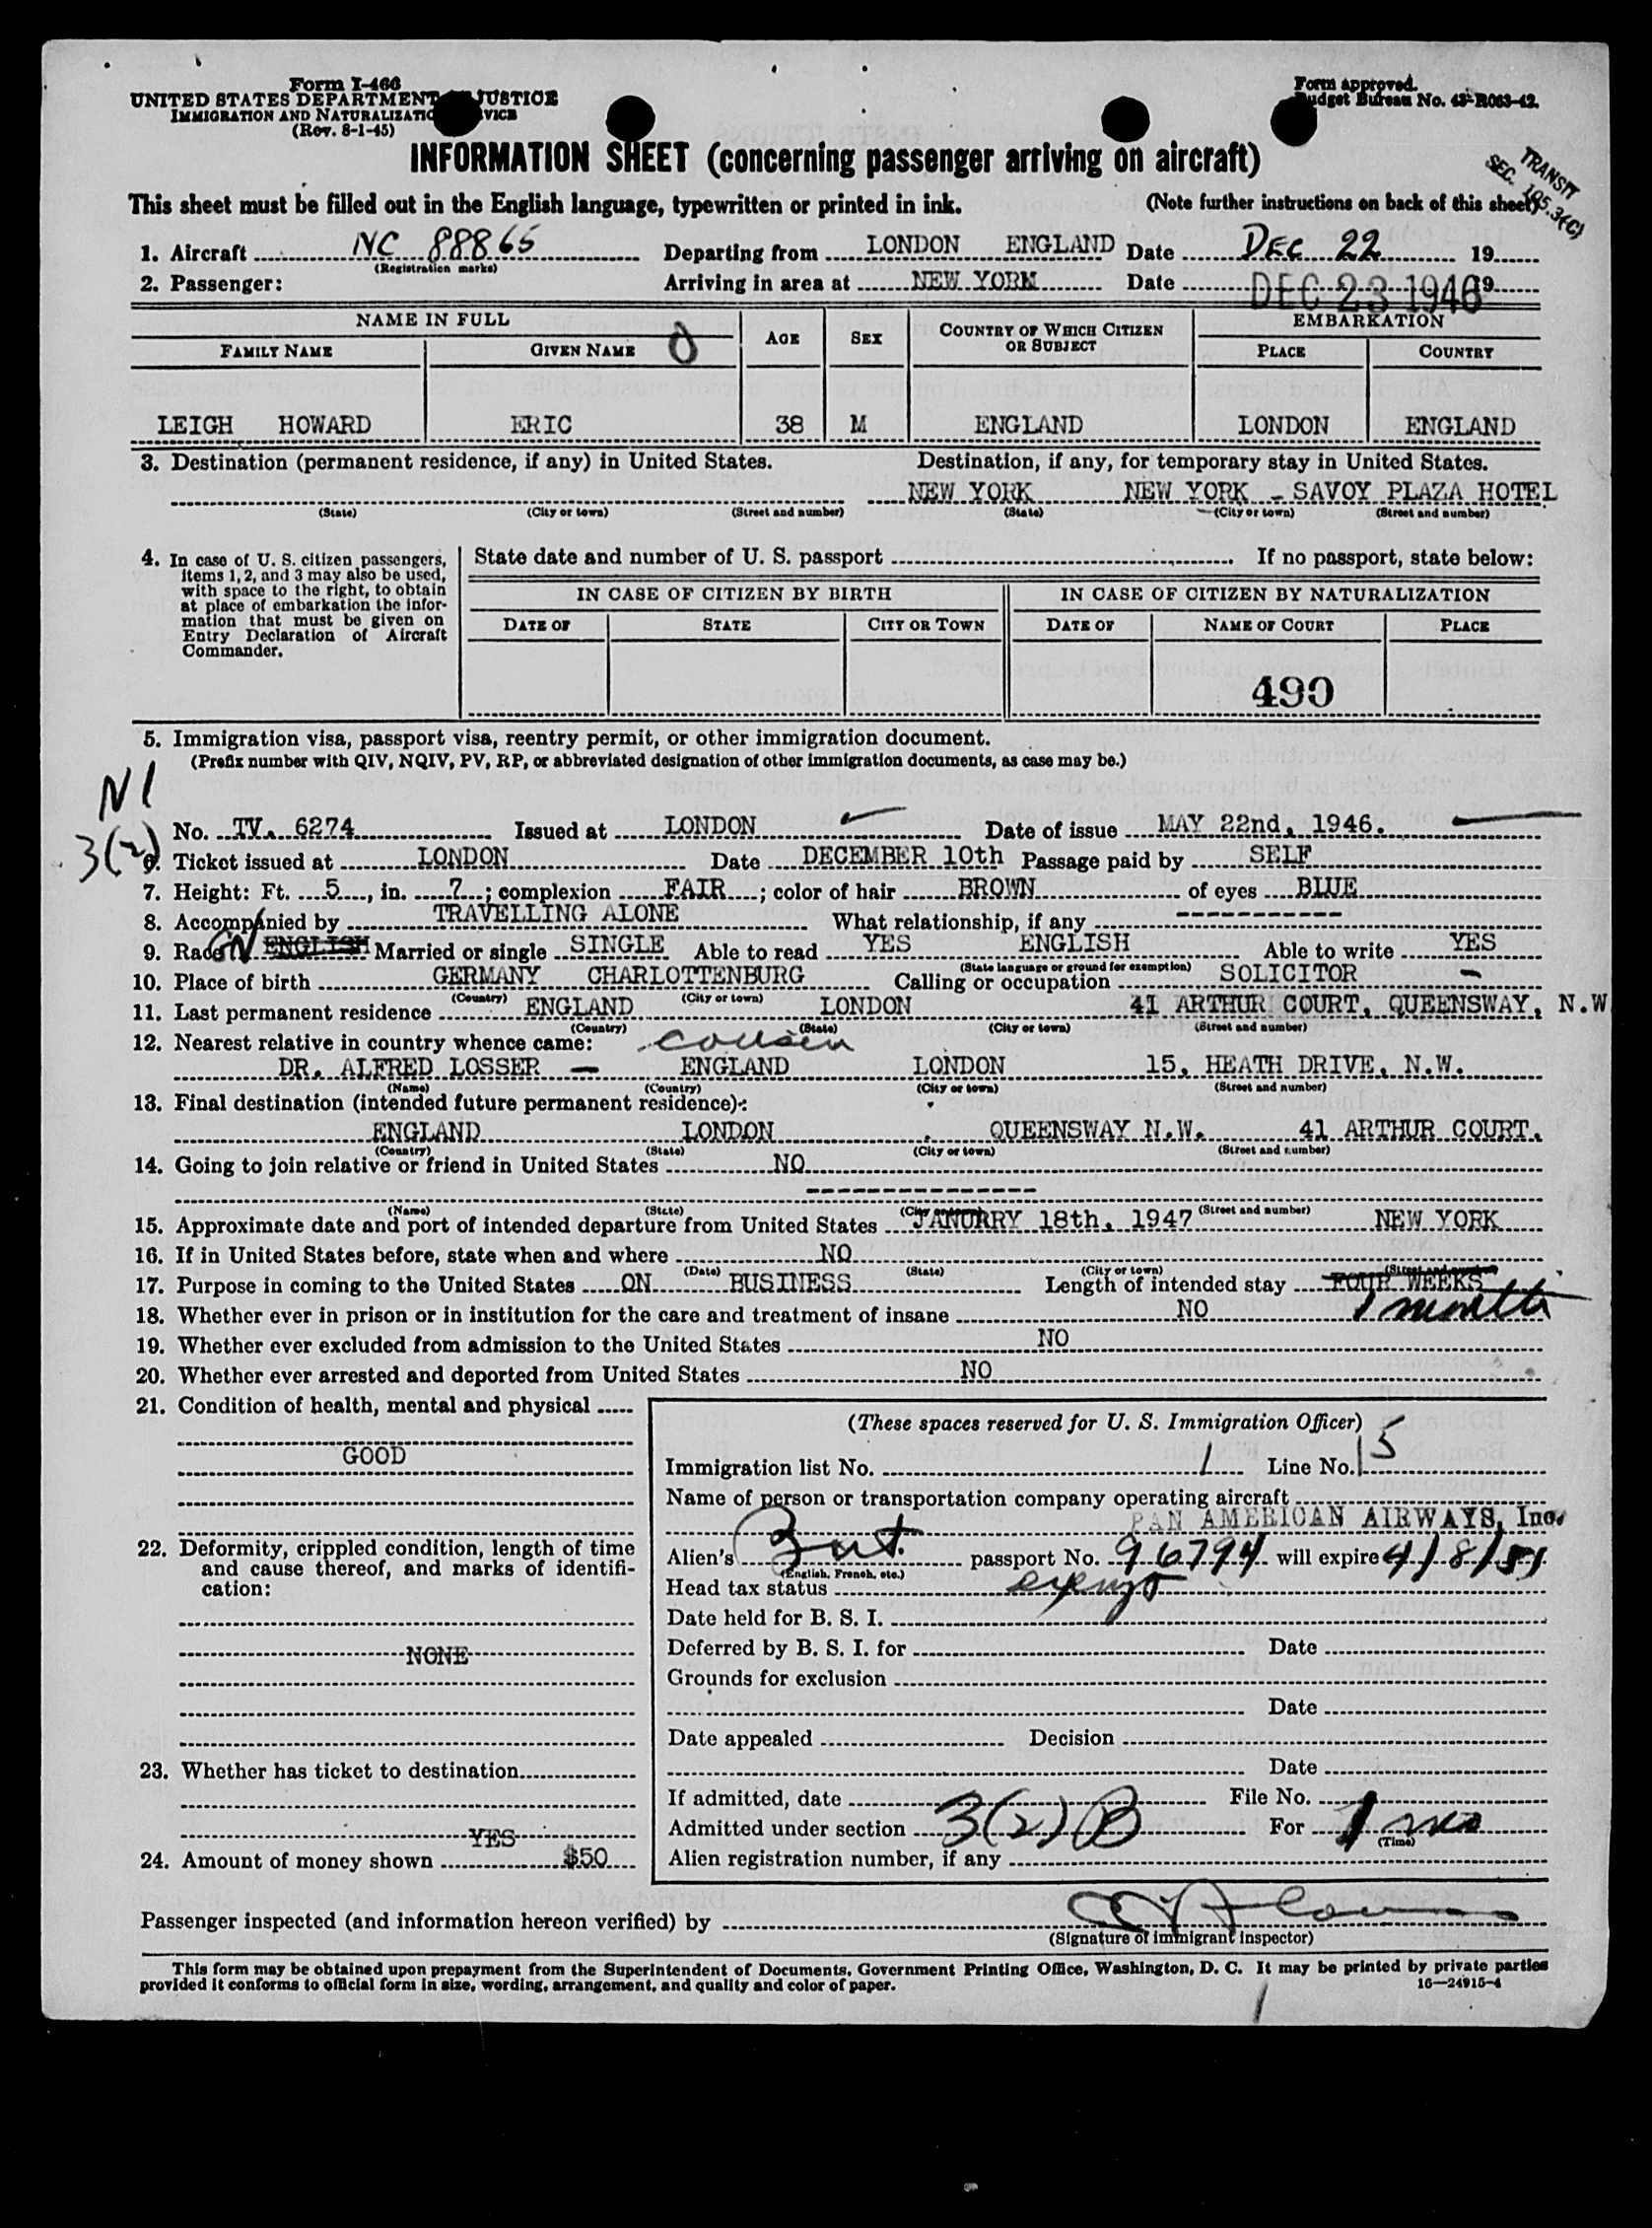 Form I-466
UNITED STATES DEPARTMENT JUSTICE
IMMIGRATION AND NATURALIZATIO VICE
(Rev. 8-1-45)
Form approved.
Budget Bureau No. 43-R063-42.
INFORMATION SHEET (concerning passenger arriving on aircraft)
TRANSIT
SEC. 105.3(C)
This sheet must be filled out in the English language, typewritten or printed in ink. (Note further instructions on back of this sheet)
1. Aircraft NC 88865 Departing from LONDON ENGLAND Date DEC 22 19
(Registration marks)
2. Passenger: Arriving in area at NEW YORK Date DEC 23 1946 19
NAME IN FULL AGE SEX COUNTRY OF WHICH CITIZEN OR SUBJECT EMBARKATION
FAMILY NAME GIVEN NAME PLACE COUNTRY
LEIGH HOWARD ERIC 38 M ENGLAND LONDON ENGLAND
3. Destination (permanent residence, if any) in United States. Destination, if any, for temporary stay in United States.
NEW YORK NEW YORK - SAVOY PLAZA HOTEL
(State) (City or town) (Street and number) (State) (City or town) (Street and number)
4. In case of U. S. citizen passengers, items 1, 2, and 3 may also be used, with space to the right, to obtain at place of embarkation the information that must be given on Entry Declaration of Aircraft Commander.
State date and number of U. S. passport If no passport, state below:
IN CASE OF CITIZEN BY BIRTH IN CASE OF CITIZEN BY NATURALIZATION
DATE OF STATE CITY OR TOWN DATE OF NAME OF COURT PLACE
490
5. Immigration visa, passport visa, reentry permit, or other immigration document.
(Prefix number with QIV, NQIV, PV, RP, or abbreviated designation of other immigration documents, as case may be.)
N1
3(2)
No. TV. 6274 Issued at LONDON Date of issue MAY 22nd, 1946.
6. Ticket issued at LONDON Date DECEMBER 10th Passage paid by SELF
7. Height: Ft. 5, in. 7; complexion FAIR; color of hair BROWN of eyes BLUE
8. Accompanied by TRAVELLING ALONE What relationship, if any -----------
9. Race ENGLISH Married or single SINGLE Able to read YES ENGLISH Able to write YES
(State language or ground for exemption)
10. Place of birth GERMANY CHARLOTTENBURG Calling or occupation SOLICITOR
(Country) (City or town)
11. Last permanent residence ENGLAND LONDON 41 ARTHUR COURT, QUEENSWAY, N.W
(Country) (State) (City or town) (Street and number)
12. Nearest relative in country whence came: cousin
DR. ALFRED LOSSER — ENGLAND LONDON 15, HEATH DRIVE, N.W.
(Name) (Country) (City or town) (Street and number)
13. Final destination (intended future permanent residence):
ENGLAND LONDON QUEENSWAY N.W. 41 ARTHUR COURT.
(Country) (State) (City or town) (Street and number)
14. Going to join relative or friend in United States NO
---------------
(Name) (State) (City or town) (Street and number)
15. Approximate date and port of intended departure from United States JANURRY 18th, 1947 NEW YORK
16. If in United States before, state when and where NO
(Date) (State) (City or town) (Street and number)
17. Purpose in coming to the United States ON BUSINESS Length of intended stay FOUR WEEKS
1 month
18. Whether ever in prison or in institution for the care and treatment of insane NO
19. Whether ever excluded from admission to the United States NO
20. Whether ever arrested and deported from United States NO
21. Condition of health, mental and physical
GOOD
22. Deformity, crippled condition, length of time and cause thereof, and marks of identification:
NONE
23. Whether has ticket to destination
YES
24. Amount of money shown $50
(These spaces reserved for U. S. Immigration Officer)
Immigration list No. 1 Line No. 15
Name of person or transportation company operating aircraft
PAN AMERICAN AIRWAYS, Inc.
Alien's Brit. passport No. 96794 will expire 4/8/51
(English, French, etc.)
Head tax status exempt
Date held for B. S. I.
Deferred by B. S. I. for Date
Grounds for exclusion
Date
Date appealed Decision
Date
If admitted, date File No.
Admitted under section 3(2)B For 1 mo
(Time)
Alien registration number, if any
Passenger inspected (and information hereon verified) by
(Signature of immigrant inspector)
This form may be obtained upon prepayment from the Superintendent of Documents, Government Printing Office, Washington, D. C. It may be printed by private parties
provided it conforms to official form in size, wording, arrangement, and quality and color of paper. 16—24915-4